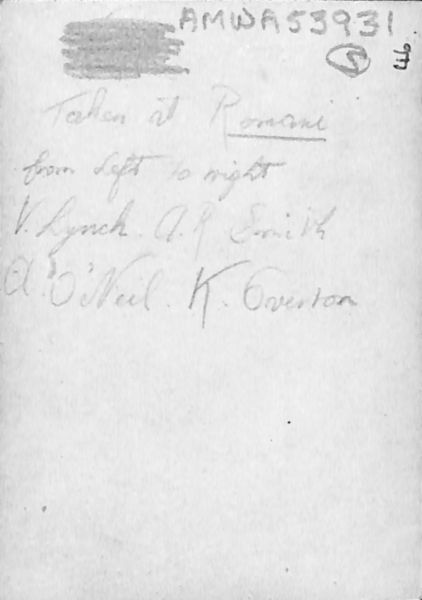 AMWA53931
5
Taken at Romani
from Left to right
V. Lynch. A.R. Smith
A. O'Neil. K. Overton